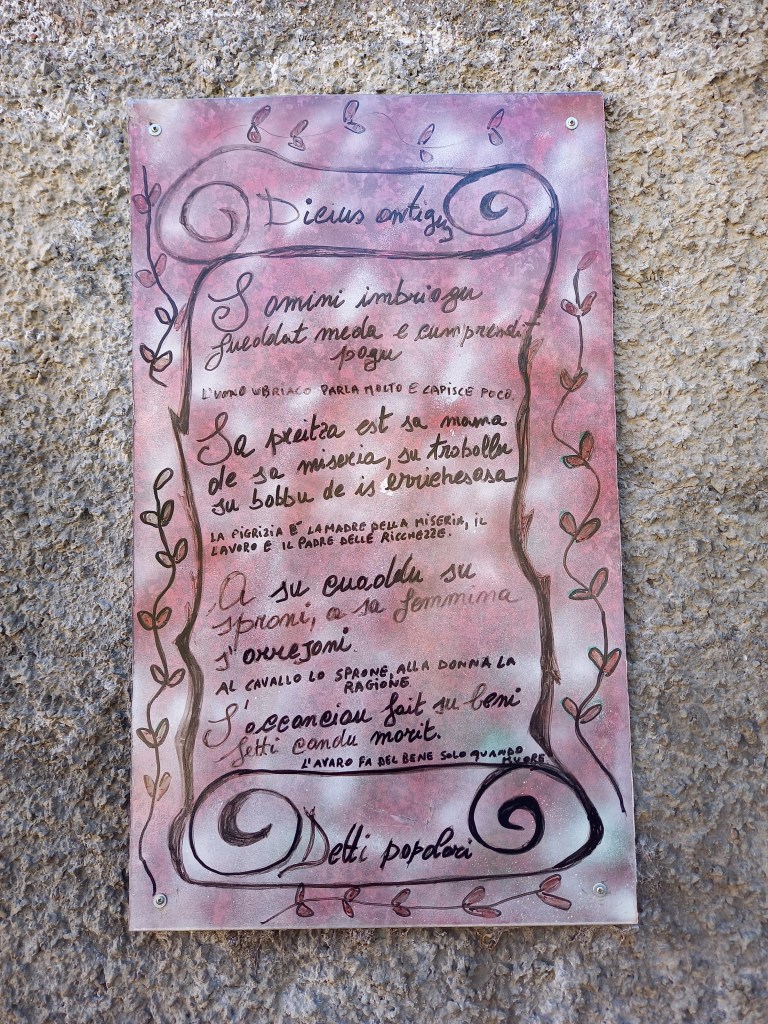 Dicius antigus
S'omini imbriagu
fueddat meda e cumprendit
pogu
L'UOMO UBRIACO PARLA MOLTO E CAPISCE POCO.
Sa preitza est sa mama
de sa miseria, su trabollu
su bobbu de is errichesasa
LA PIGRIZIA È LA MADRE DELLA MISERIA, IL
LAVORO È IL PADRE DELLE RICCHEZZE.
A su cuaddu su
sproni, a sa femmima
s'orrejoni
AL CAVALLO LO SPRONE, ALLA DONNA LA
RAGIONE
S'acconciau fait su beni
fetti candu morit.
L'AVARO FA DEL BENE SOLO QUANDO
MUORE
Detti popolari